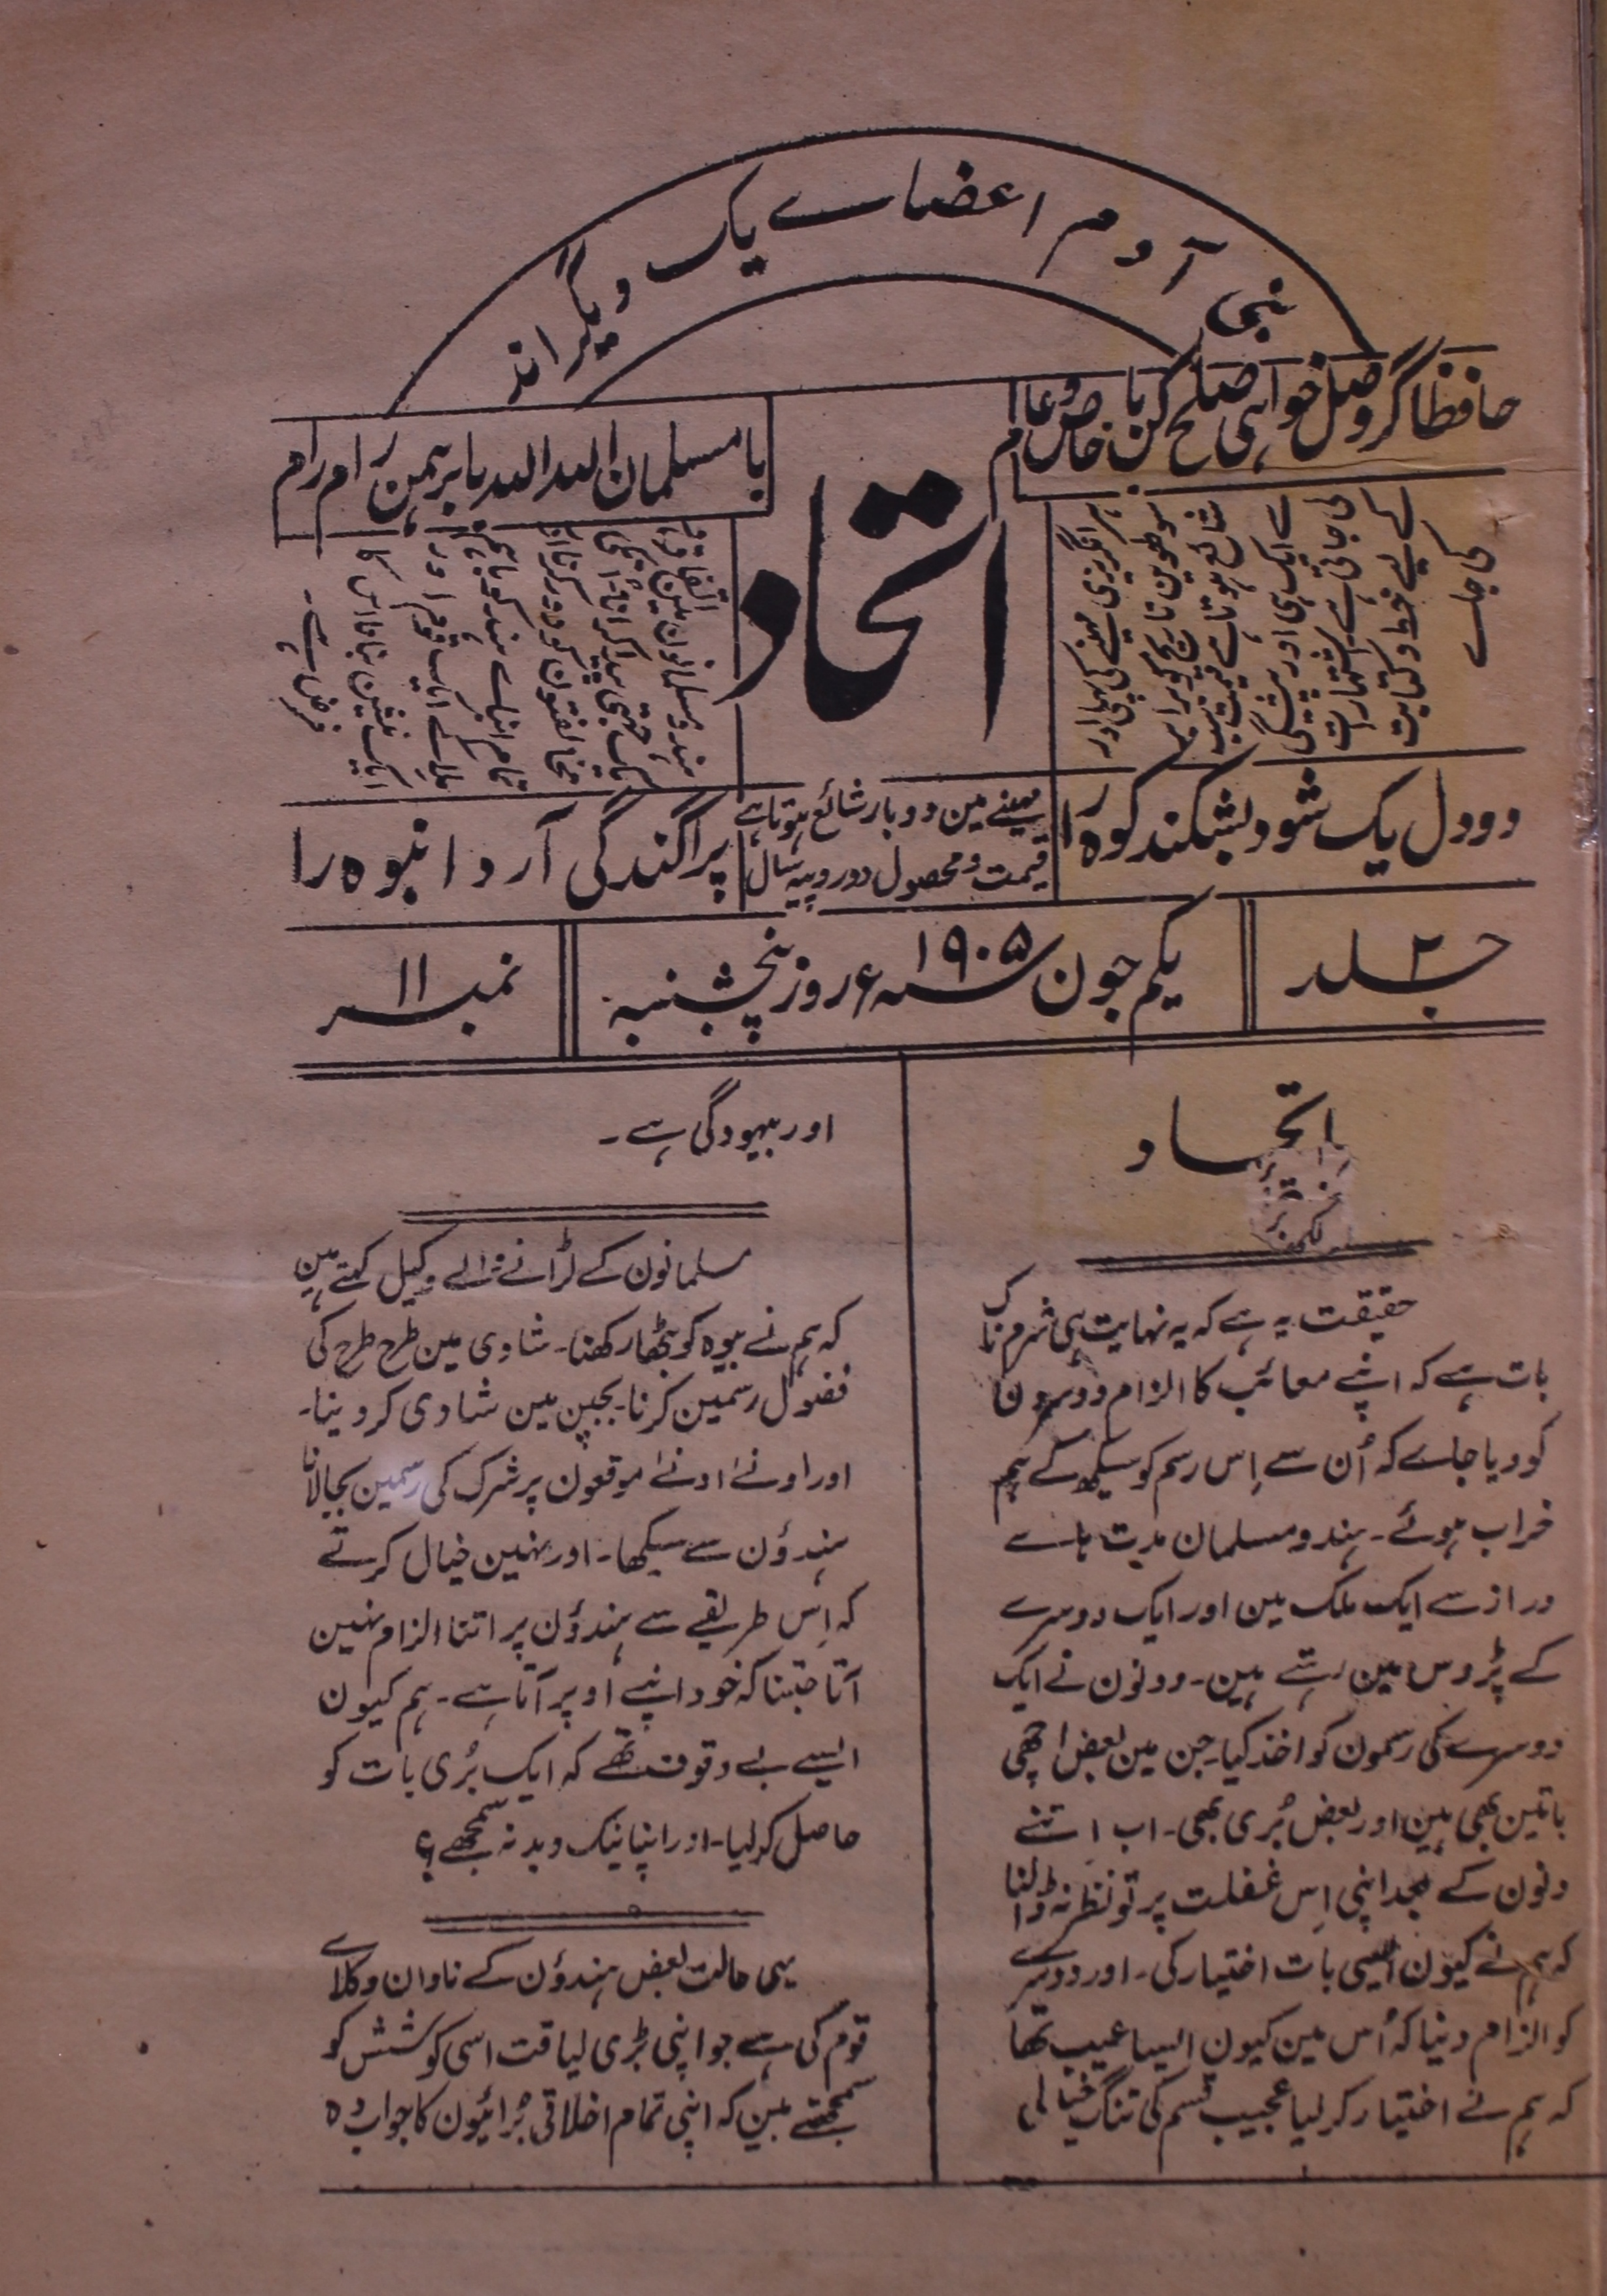 بنی آدم اعضاے یک دیگراند
حافظا گر وصل خواہی صلح کن با خاص و عام
با مسلمان اللہ اللہ با برہمن رام رام
اتحاد
ہر انگریزی مہینے کی پہلی اور
سولھوین تاریخ کو
شائع ہوتا ہے قیمت سب
سے ایک ہی اور پیشگی
لی جاتی ہے۔ اشتہارات
کے لیے خط و کتابت
کی جاے
ہندو مسلمانون مین اتفاق و
یک جہتی پیدا کرانا
مخالفتون کو دور کرنا اور
تمام اہل ہند کو باہم
ملا کے ایک قوم اور
ایک نیشن بنانا اس کا
فرض ہے۔
دو دل یک شود بشکند کوہ را
مہینے مین دو بار شائع ہوتا ہے
قیمت و محصول دو روپیہ سال
پراگندگی آرد انبوہ را
جلد ۲
یکم جون سنہ ۱۹۰۵ء روز پنچشنبہ
نمبر ۱۱
اتحاد
حقیقت یہ ہے کہ یہ نہایت ہی شرم ناک
بات ہے کہ اپنے معائب کا الزام دوسرون
کو دیا جاے کہ اُن سے اِس رسم کو سیکھ کے ہم
خراب ہوئے۔ ہندو مسلمان مدت ہاے
دراز سے ایک ملک مین اور ایک دوسرے
کے پڑوس مین رہتے ہین۔ دونون نے ایک
دوسرے کی رسمون کو اخذ کیا۔ جن مین بعض اچھی
باتین بھی ہین اور بعض بُری بھی۔ اب اِتنے
دنون کے بعد اپنی اِس غفلت پر تو نظر نہ ڈالنا
کہ ہم نے کیون ایسی بات اختیار کی۔ اور دوسرے
کو الزام دینا کہ اُس مین کیون ایسا عیب تھا
کہ ہم نے اختیار کر لیا عجیب قسم کی تنگ خیالی
اور بیہودگی ہے۔
مسلمانون کے لڑانے والے وکیل کہتے ہین
کہ ہم نے بیوہ کو بٹھا رکھنا۔ شادی مین طرح طرح کی
فضول رسمین کرنا۔ بچپن مین شادی کر دینا۔
اور ادنےٰ ادنےٰ موقعون پر شرک کی رسمین بجا لانا
ہندؤن سے سیکھا۔ اور نہین خیال کرتے
کہ اِس طریقے سے ہندؤن پر اتنا الزام نہین
آتا جتنا کہ خود اپنے اوپر آتا ہے۔ ہم کیون
ایسے بے وقوف تھے کہ ایک بُری بات کو
حاصل کر لیا۔ اور اپنا نیک و بد نہ سمجھے؟
یہی حالت بعض ہندؤن کے نادان وکلاے
قوم کی ہے جو اپنی بڑی لیاقت اسی کوشش کو
سمجھتے ہین کہ اپنی تمام اخلاقی بُرائیون کا جواب دہ